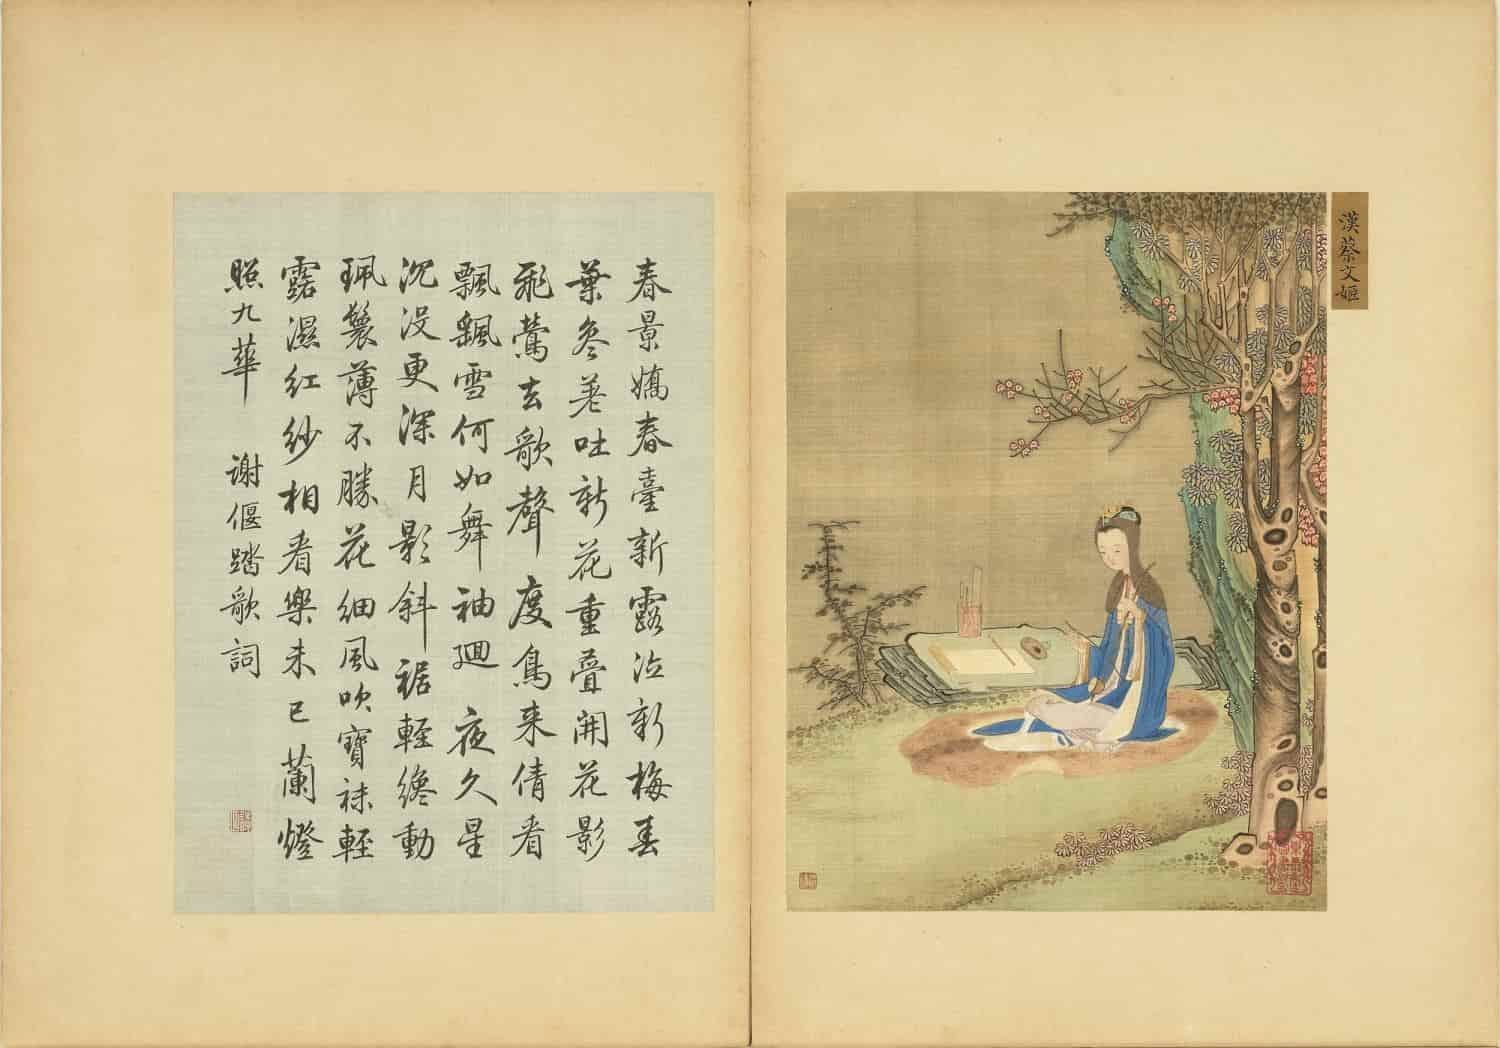 漢蔡文姬
春景嬌春臺新露泣新梅春
葉參差吐新花重疊開花影
飛鶯去歌聲度鳥来倩看
飄飄雪何如舞袖迴夜久星
沉没更深月影斜裾輕纔動
珮鬟薄不勝花細風吹寶袜輕
露濕紅紗相看樂未已蘭燈
照九華　謝偃踏歌詞